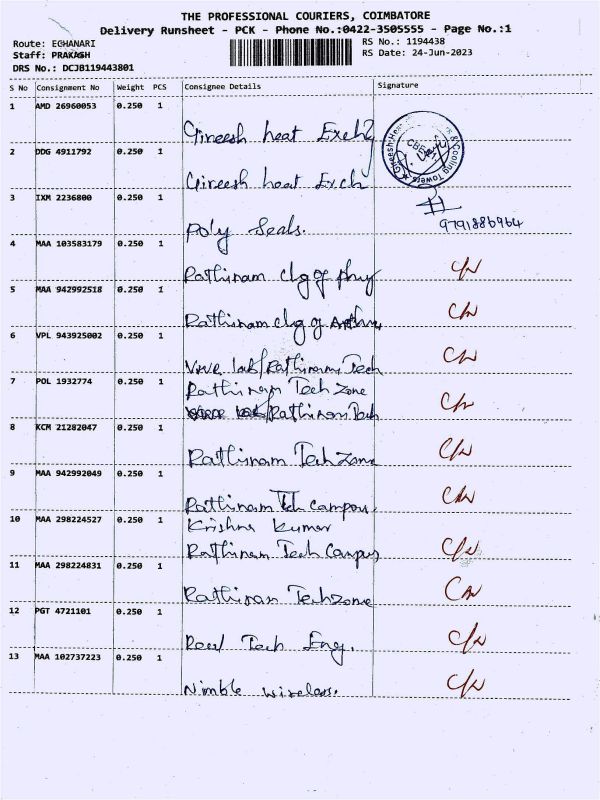 THE PROFESSIONAL COURIERS, COIMBATORE
Delivery Runsheet - PCK - Phone No.:0422-3505555 - Page No.:1
Route: EGHANARI
RS No.: 1194438
Staff: PRAKASH
RS Date: 24-Jun-2023
DRS No.: DCJB119443801
S No Consignment No Weight PCS Consignee Details Signature
1 AMD 26960053 0.250 1
Gireesh heat Exch
2 DDG 4911792 0.250 1
Gireesh heat Exch
3 IXM 2236800 0.250 1
Poly Seals. 9791886964
4 MAA 103583179 0.250 1
Rathinam clg of phy C/N
5 MAA 942992518 0.250 1
Rathinam clg of C/N
6 VPL 943925002 0.250 1
lab/Rathinam Tech C/N
7 POL 1932774 0.250 1
Rathinam Tech Zone
/Rathinam Tech C/N
8 KCM 21282047 0.250 1
Rathinam Tech Zone C/N
9 MAA 942992049 0.250 1
Rathinam Tech Campus C/N
10 MAA 298224527 0.250 1
Krishna Kumar
Rathinam Tech Campus C/N
11 MAA 298224831 0.250 1
Rathinam Techzone C/N
12 PGT 4721101 0.250 1
Real Tech Eng. C/N
13 MAA 102737223 0.250 1
Nimble wireless. C/N